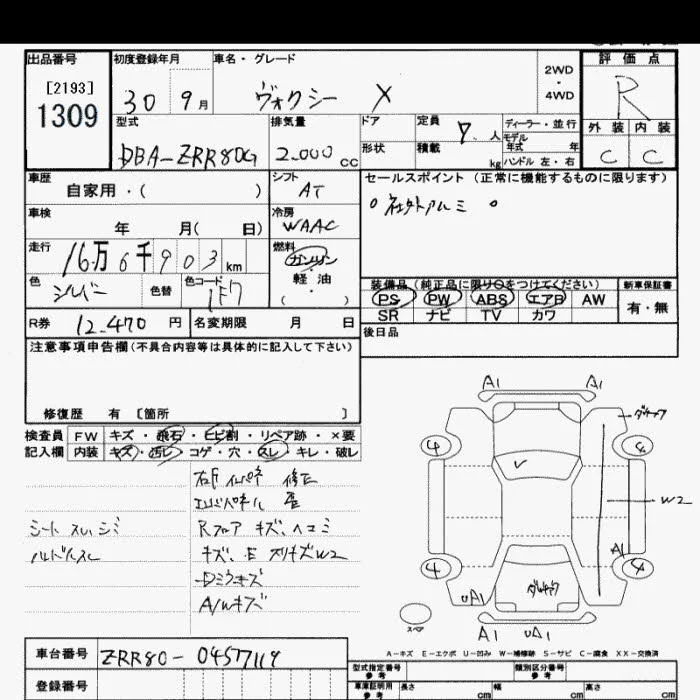 出品番号 初度登録年月 車名・グレード 2WD・4WD 評価点
[2193]
1309 30 9月 ヴォクシー X R
型式 排気量 ドア 定員 7人 ディーラー・並行 外装 内装
形状 積載 kg モデル年式 年 ハンドル 左・右
DBA-ZRR80G 2.000cc C C
車歴 自家用・( ) シフト AT セールスポイント (正常に機能するものに限ります)
車検 年 月( 日) 冷房 WAAC 社外アルミ
走行 16万6千903km 燃料 ガソリン・軽油( )
色 シルバー 色替 色コード 1F7
装備品(純正品に限り○をつけてください) 新車保証書
PS PW ABS エアB AW 有・無
SR ナビ TV カワ
R券 12.470円 名変期限 月 日 後日品
注意事項申告欄(不具合内容等は具体的に記入して下さい)
修復歴 有 [箇所 ]
検査員 FW キズ・飛石・ヒビ割・リペア跡・×要
記入欄 内装 キズ・汚レ・コゲ・穴・スレ・キレ・破レ
修正
シート スレ,シミ Rフロア キズ、ヘコミ
ハンドルスレ キズ、E スリキズW2
A/Wキズ
A1 A1
4
W2
A1
4 4
UA1
スペア
A1 UA1
A-キズ E-エクボ U-凹み W-補修跡 S-サビ C-腐食 XX-交換済
車台番号 ZRR80-0457719
登録番号
型式指定番号 参考 類別区分番号 参考
車庫証明用 参考 長さ cm 幅 cm 高さ cm